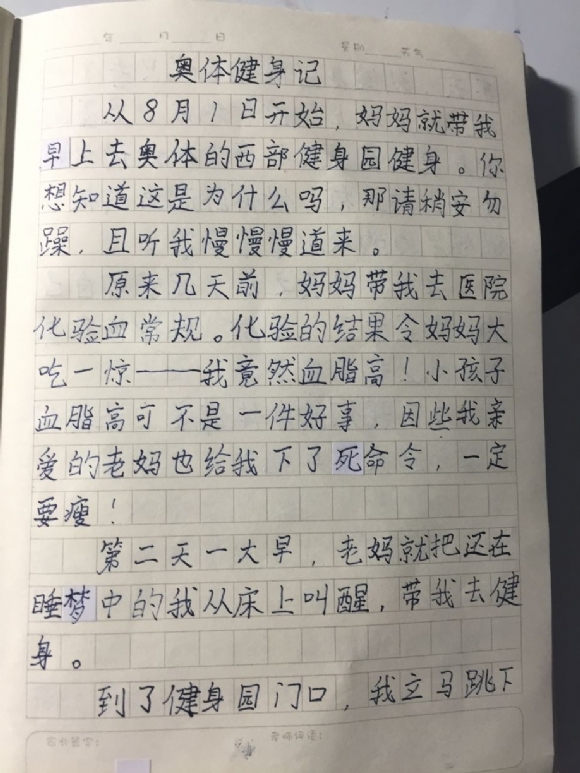 年 月 日 星期 天气
奥体健身记
从8月1日开始，妈妈就带我
早上去奥体的西部健身园健身。你
想知道这是为什么吗，那请稍安勿
躁，且听我慢慢慢道来。
原来几天前，妈妈带我去医院
化验血常规。化验的结果令妈妈大
吃一惊——我竟然血脂高！小孩子
血脂高可不是一件好事，因些我亲
爱的老妈也给我下了死命令，一定
要瘦！
第二天一大早，老妈就把还在
睡梦中的我从床上叫醒，带我去健
身。
到了健身园门口，我立马跳下
家长签字： 老师评语：